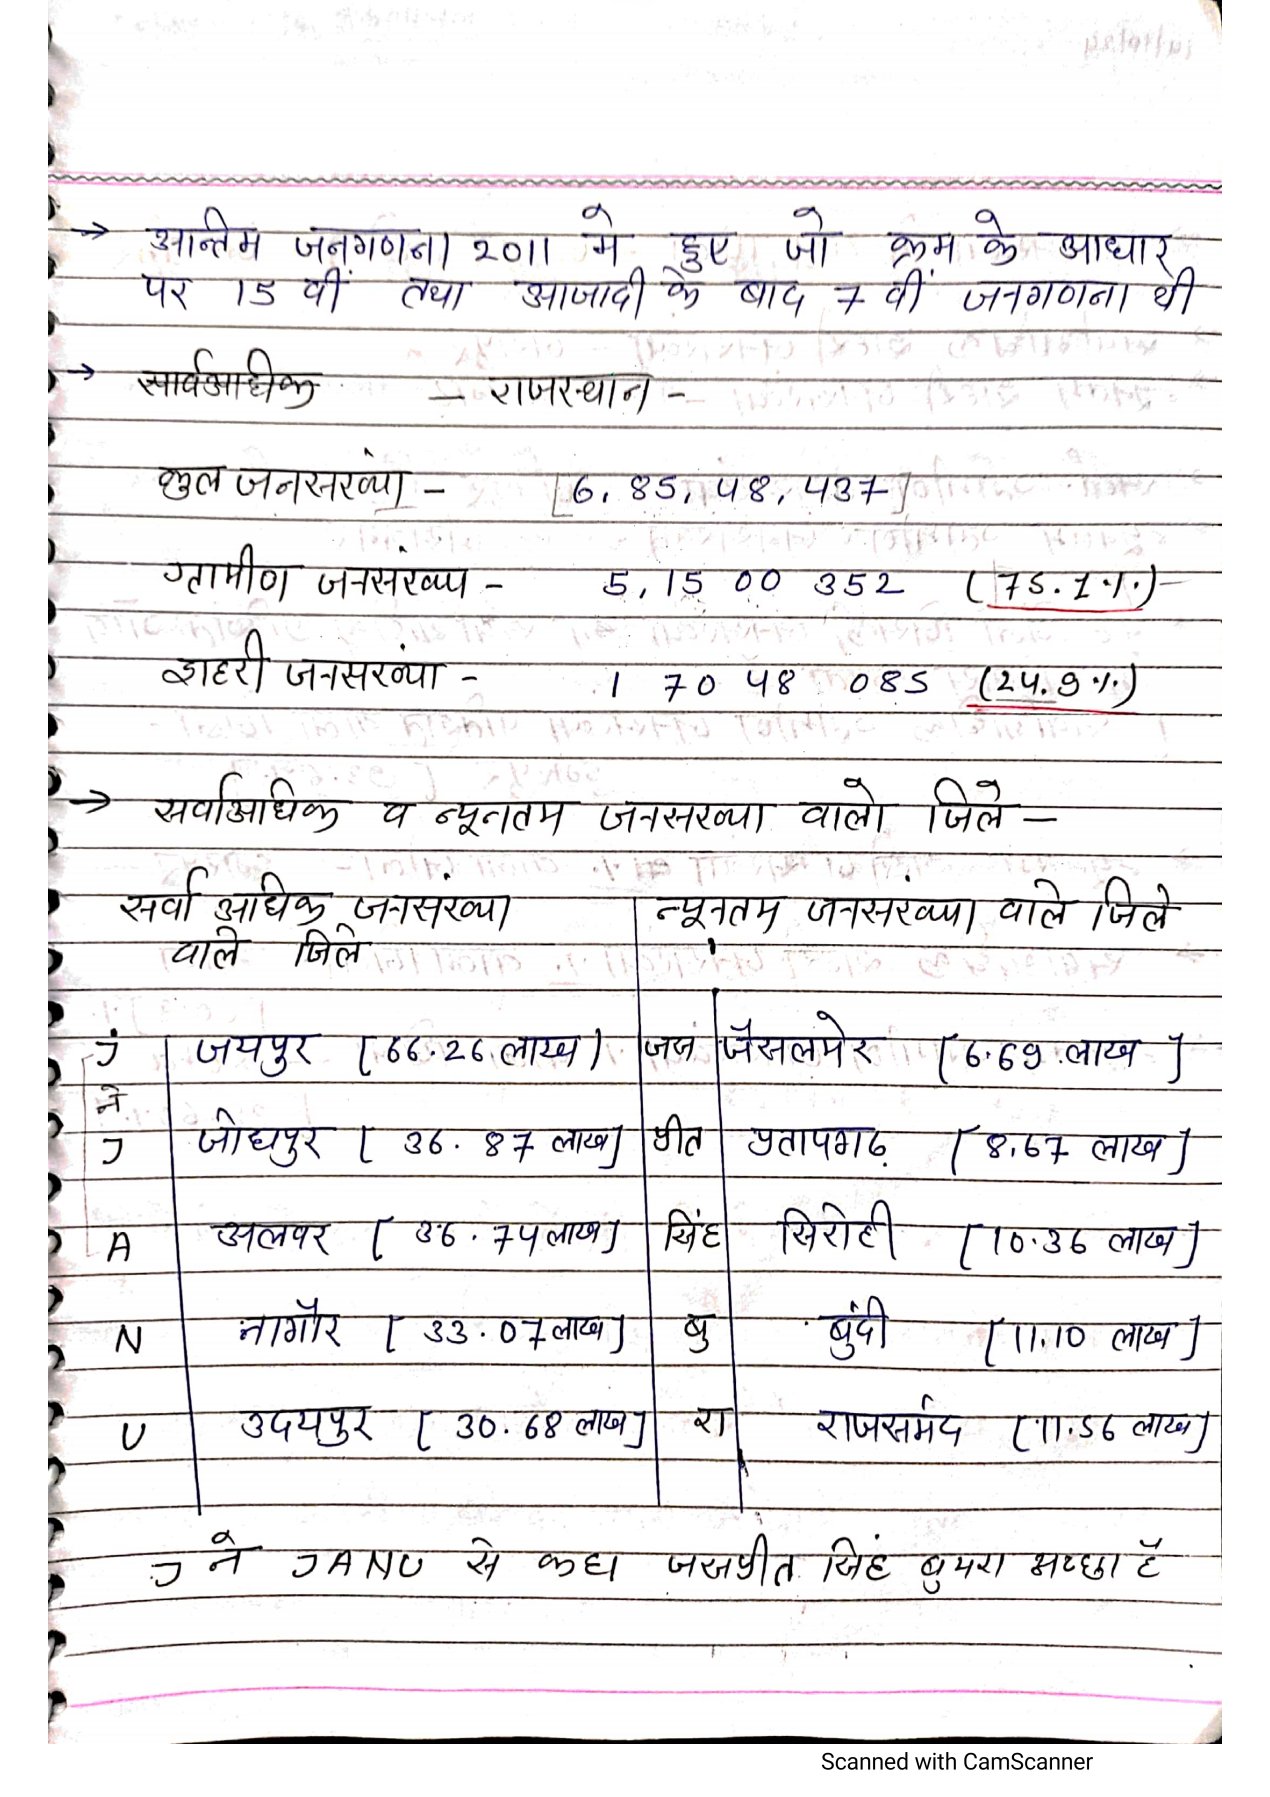 → अन्तिम जनगणना 2011 मे हुए जो क्रम के आधार
पर 15 वीं तथा आजादी के बाद 7 वीं जनगणना थी
→ सार्वआधीक — राजस्थान -
कुल जनसख्यां - [6,85,48,437]
ग्रामीण जनसंख्य - 5,15 00 352 (75.1%)-
शहरी जनसख्यां - 1 70 48 085 (24.9%)
→ सर्वाअधिक व न्यूनतम जनसख्या वालो जिले —
सर्वा अधिक जनसंख्या
वाले जिले
न्यूनतम जनसंख्या वाले जिले
J जयपुर [66.26 लाख) जज जैसलमेर [6.69 लाख]
ने
J जोधपुर [36.87 लाख] प्रीत प्रतापगढ़ [8.67 लाख]
A अलवर [36.74 लाख] सिंह सिरोही [10.36 लाख]
N नागौर [33.07 लाख] बु बुंदी [11.10 लाख]
U उदयपुर [30.68 लाख] रा राजसमंद [11.56 लाख]
J ने JANU से कहा जसप्रीत सिंह बुमरा अच्छा है
Scanned with CamScanner